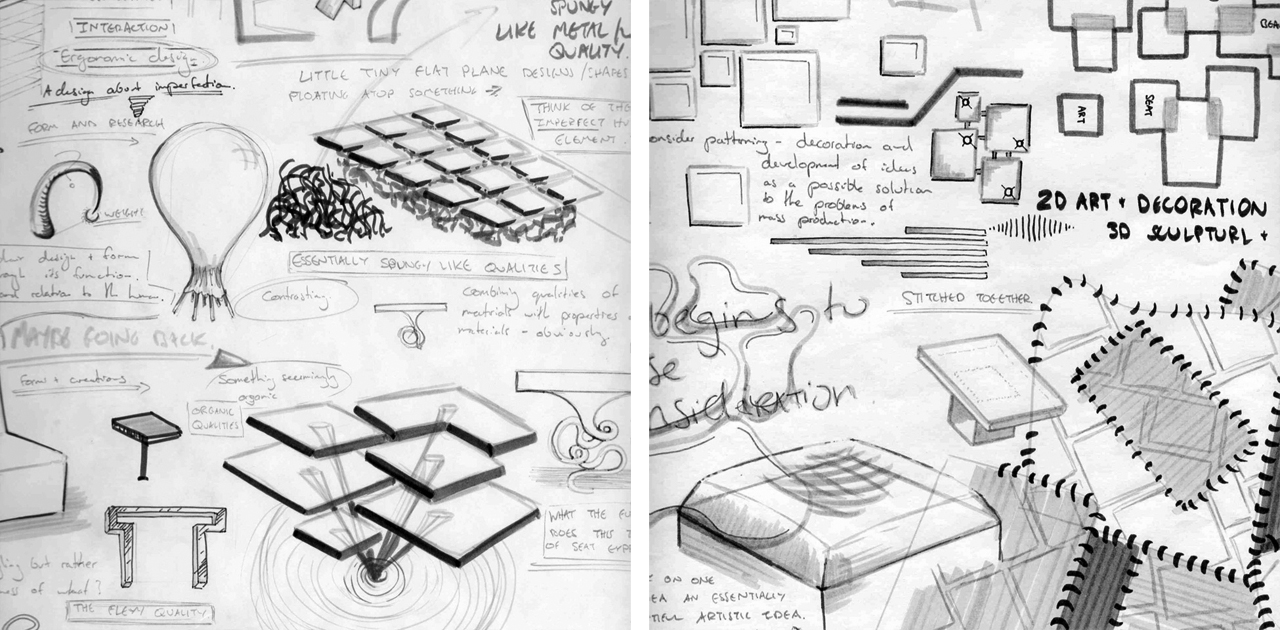 INTERACTION
Ergonomic design
A design about imperfection.
FORM AND RESEARCH
WEIGHT
design + form
its function.
and relation to the human.
MAYBE GOING BACK.
Form + creations
Something seemingly
organic
ORGANIC
QUALITIES
but rather
of what?
THE FLEXY QUALITY
SPUNGY
LIKE METAL
QUALITY.
LITTLE TINY FLAT PLANE DESIGNS/SHAPES
FLOATING ATOP SOMETHING
THINK OF THE
IMPERFECT HU
ELEMENT
ESSENTIALLY SPUNGY LIKE QUALITIES
Contrasting
Combining qualities of
materials with properties
materials - obviously.
WHAT THE FU
DOES THIS T
OF SEAT EXP
BEA
SEAT
ART
onsider patterning - decoration and
development of ideas
as a possible solution
to the problems of
mass production.
2D ART + DECORATION
3D SCULPTURE +
STITCHED TOGETHER.
begins to
se
nsideration.
ON ONE
EA AN ESSENTIALLY
TIFUL ARTISTIC IDEA.